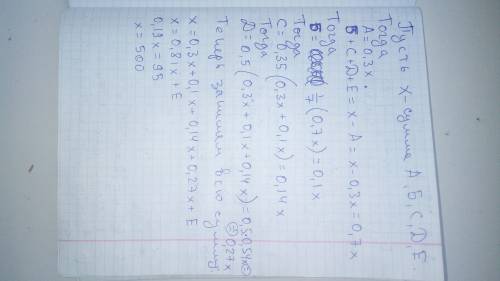 Пусть x-сумма А, Б, С, D, E.
Тогда
А=0,3x.
Б+С+D+E=x-A=x-0,3x=0,7x
Тогда
Б= 1/7(0,7x)=0,1x
Тогда
С=0,35(0,3x+0,1x)=0,14x
Тогда
D=0,5(0,3x+0,1x+0,14x)=0,5·0,54x=
=0,27x
Теперь запишем всю сумму.
x=0,3x+0,1x+0,14x+0,27x+E
x=0,81x+E
0,19x=95
x=500